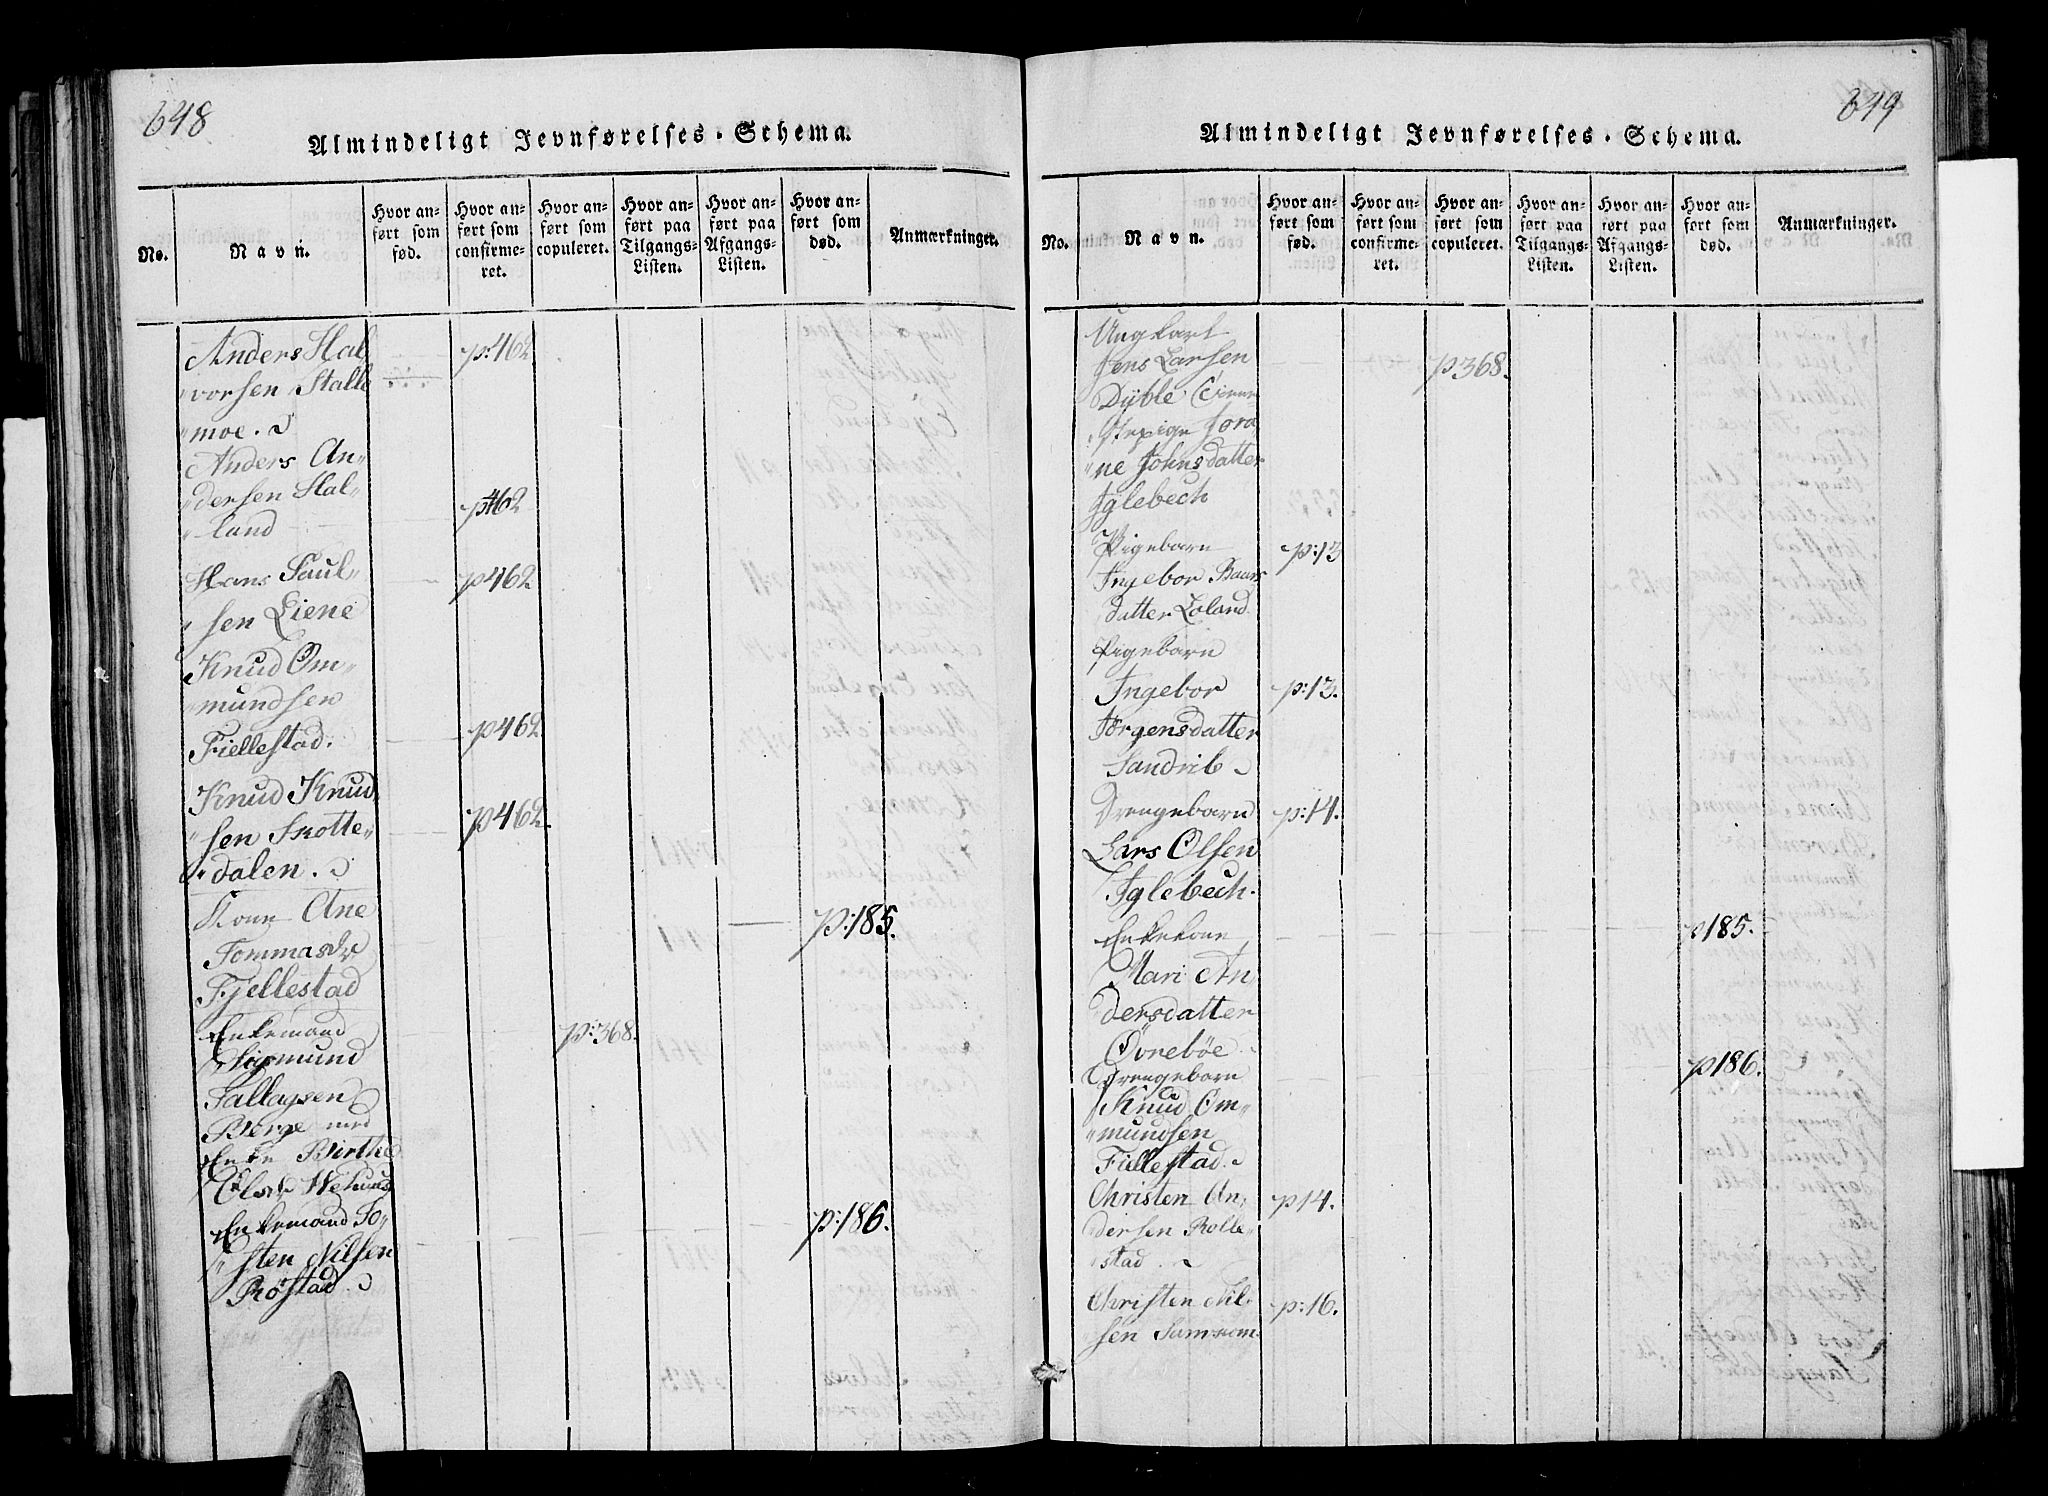 648
Almindeligt Jevnførelses-Schema.
No.
Navn.
Hvor an-
ført som
fød.
Hvor an-
ført som
confirme-
ret.
Hvor an-
ført som
copuleret.
Hvor an-
ført paa
Tilgangs-
Listen.
Hvor an-
ført paa
Afgangs-
Listen.
Hvor an-
ført som
død.
Anmærkninger.
Anders Hal
p:462
vorsen Stalle
moe.
Anders An
dersen Hal
p462
land
Hans Paul
p462
sen Liene
Knud Om
mundsen
Fiellestad.
p462
Knud Knud
sen Skotte
p462.
dalen.
Kone Ane
p:185.
Tommasdr
Fjellestad
Enkemand
p:368.
Sigmund
Tallagsen
Berge med
Enke Birthe
Olsdr Wehuus
Enkemand To
p:186.
sten Nilsen
Røstad
649
Almindeligt Jevnførelses-Schema.
No.
Navn.
Hvor an-
ført som
fød.
Hvor an-
ført som
confirme-
ret.
Hvor an-
ført som
copuleret.
Hvor an-
ført paa
Tilgangs-
Listen.
Hvor an-
ført paa
Afgangs-
Listen.
Hvor an-
ført som
død.
Anmærkninger.
Ungkarl
Jens Larsen
p368.
Dyble
Jora
ne Johnsdatter
Iglebech
Pigebarn
p:13
Ingebor Baars
datter Loland
Pigebarn
Ingebor
p:13.
Jørgensdatter
Sandvik
Drengebarn
p:14.
Lars Olsen
Iglebech.
Enkekone
p185.
Mari An
dersdatter
Øvnebøe
Drengebarn
p186.
Knud Om
mundsen
Fiellestad.
Christen An
p14.
dersen Rolle
stad
Christen Nil
p:16.
sen